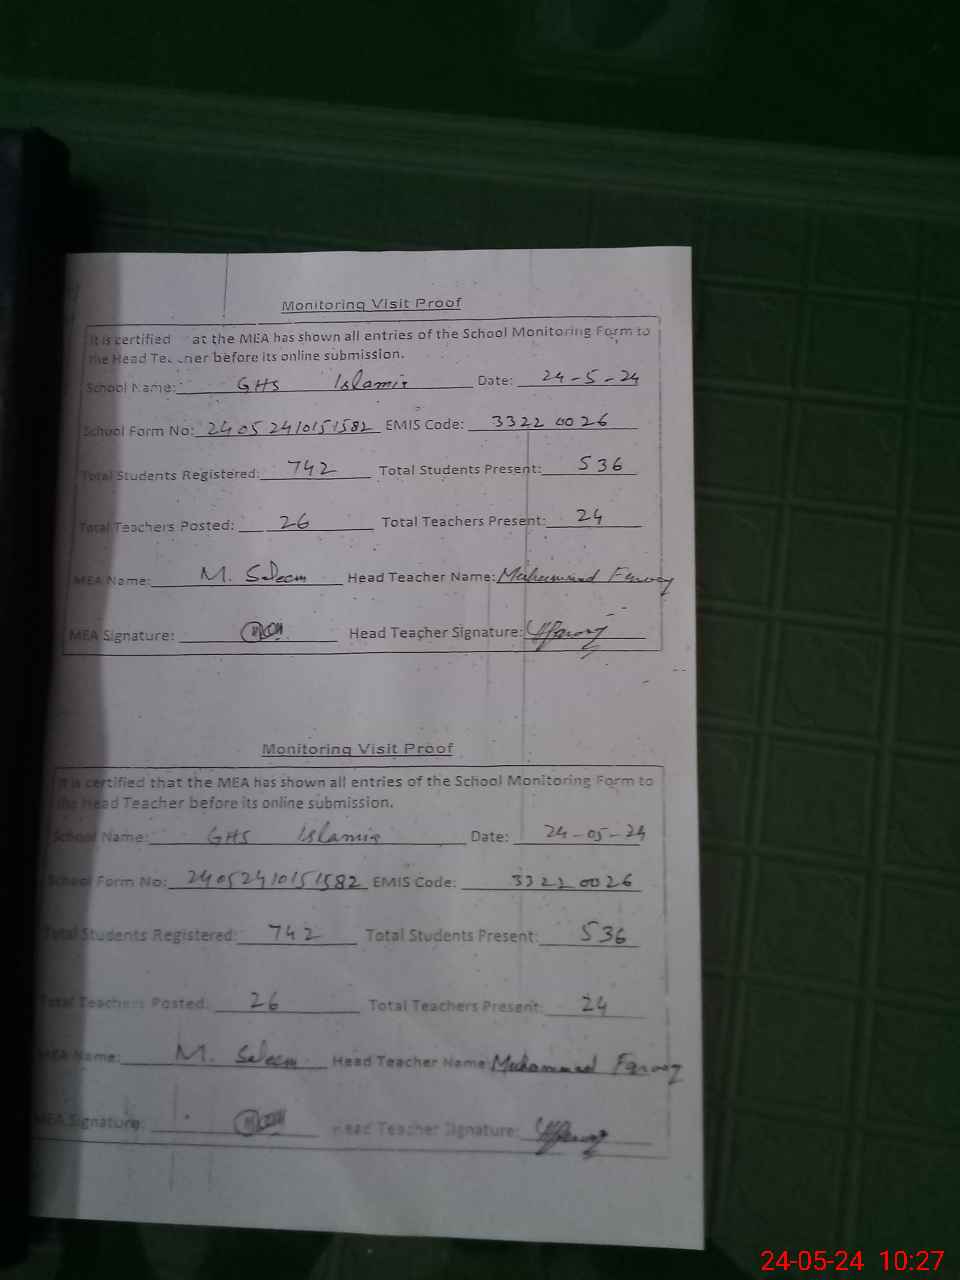 Monitoring Visit Proof
It is certified at the MEA has shown all entries of the School Monitoring Form to
the Head Te ner before its online submission.
School Name: GHS Islamia Date: 24-5-24
School Form No: 24052410151582 EMIS Code: 33220026
Total Students Registered: 742 Total Students Present: 536
Total Teachers Posted: 26 Total Teachers Present: 24
MEA Name: M. Saleem Head Teacher Name: Muhammad Farooq
MEA Signature: Head Teacher Signature:
Monitoring Visit Proof
It is certified that the MEA has shown all entries of the School Monitoring Form to
the Head Teacher before its online submission.
School Name: GHS Islamia Date: 24-05-24
School Form No: 24052410151582 EMIS Code: 33220026
Total Students Registered: 742 Total Students Present: 536
Total Teachers Posted: 26 Total Teachers Present: 24
MEA Name: M. Saleem Head Teacher Name: Muhammad Farooq
MEA Signature: Head Teacher Signature:
24-05-24 10:27